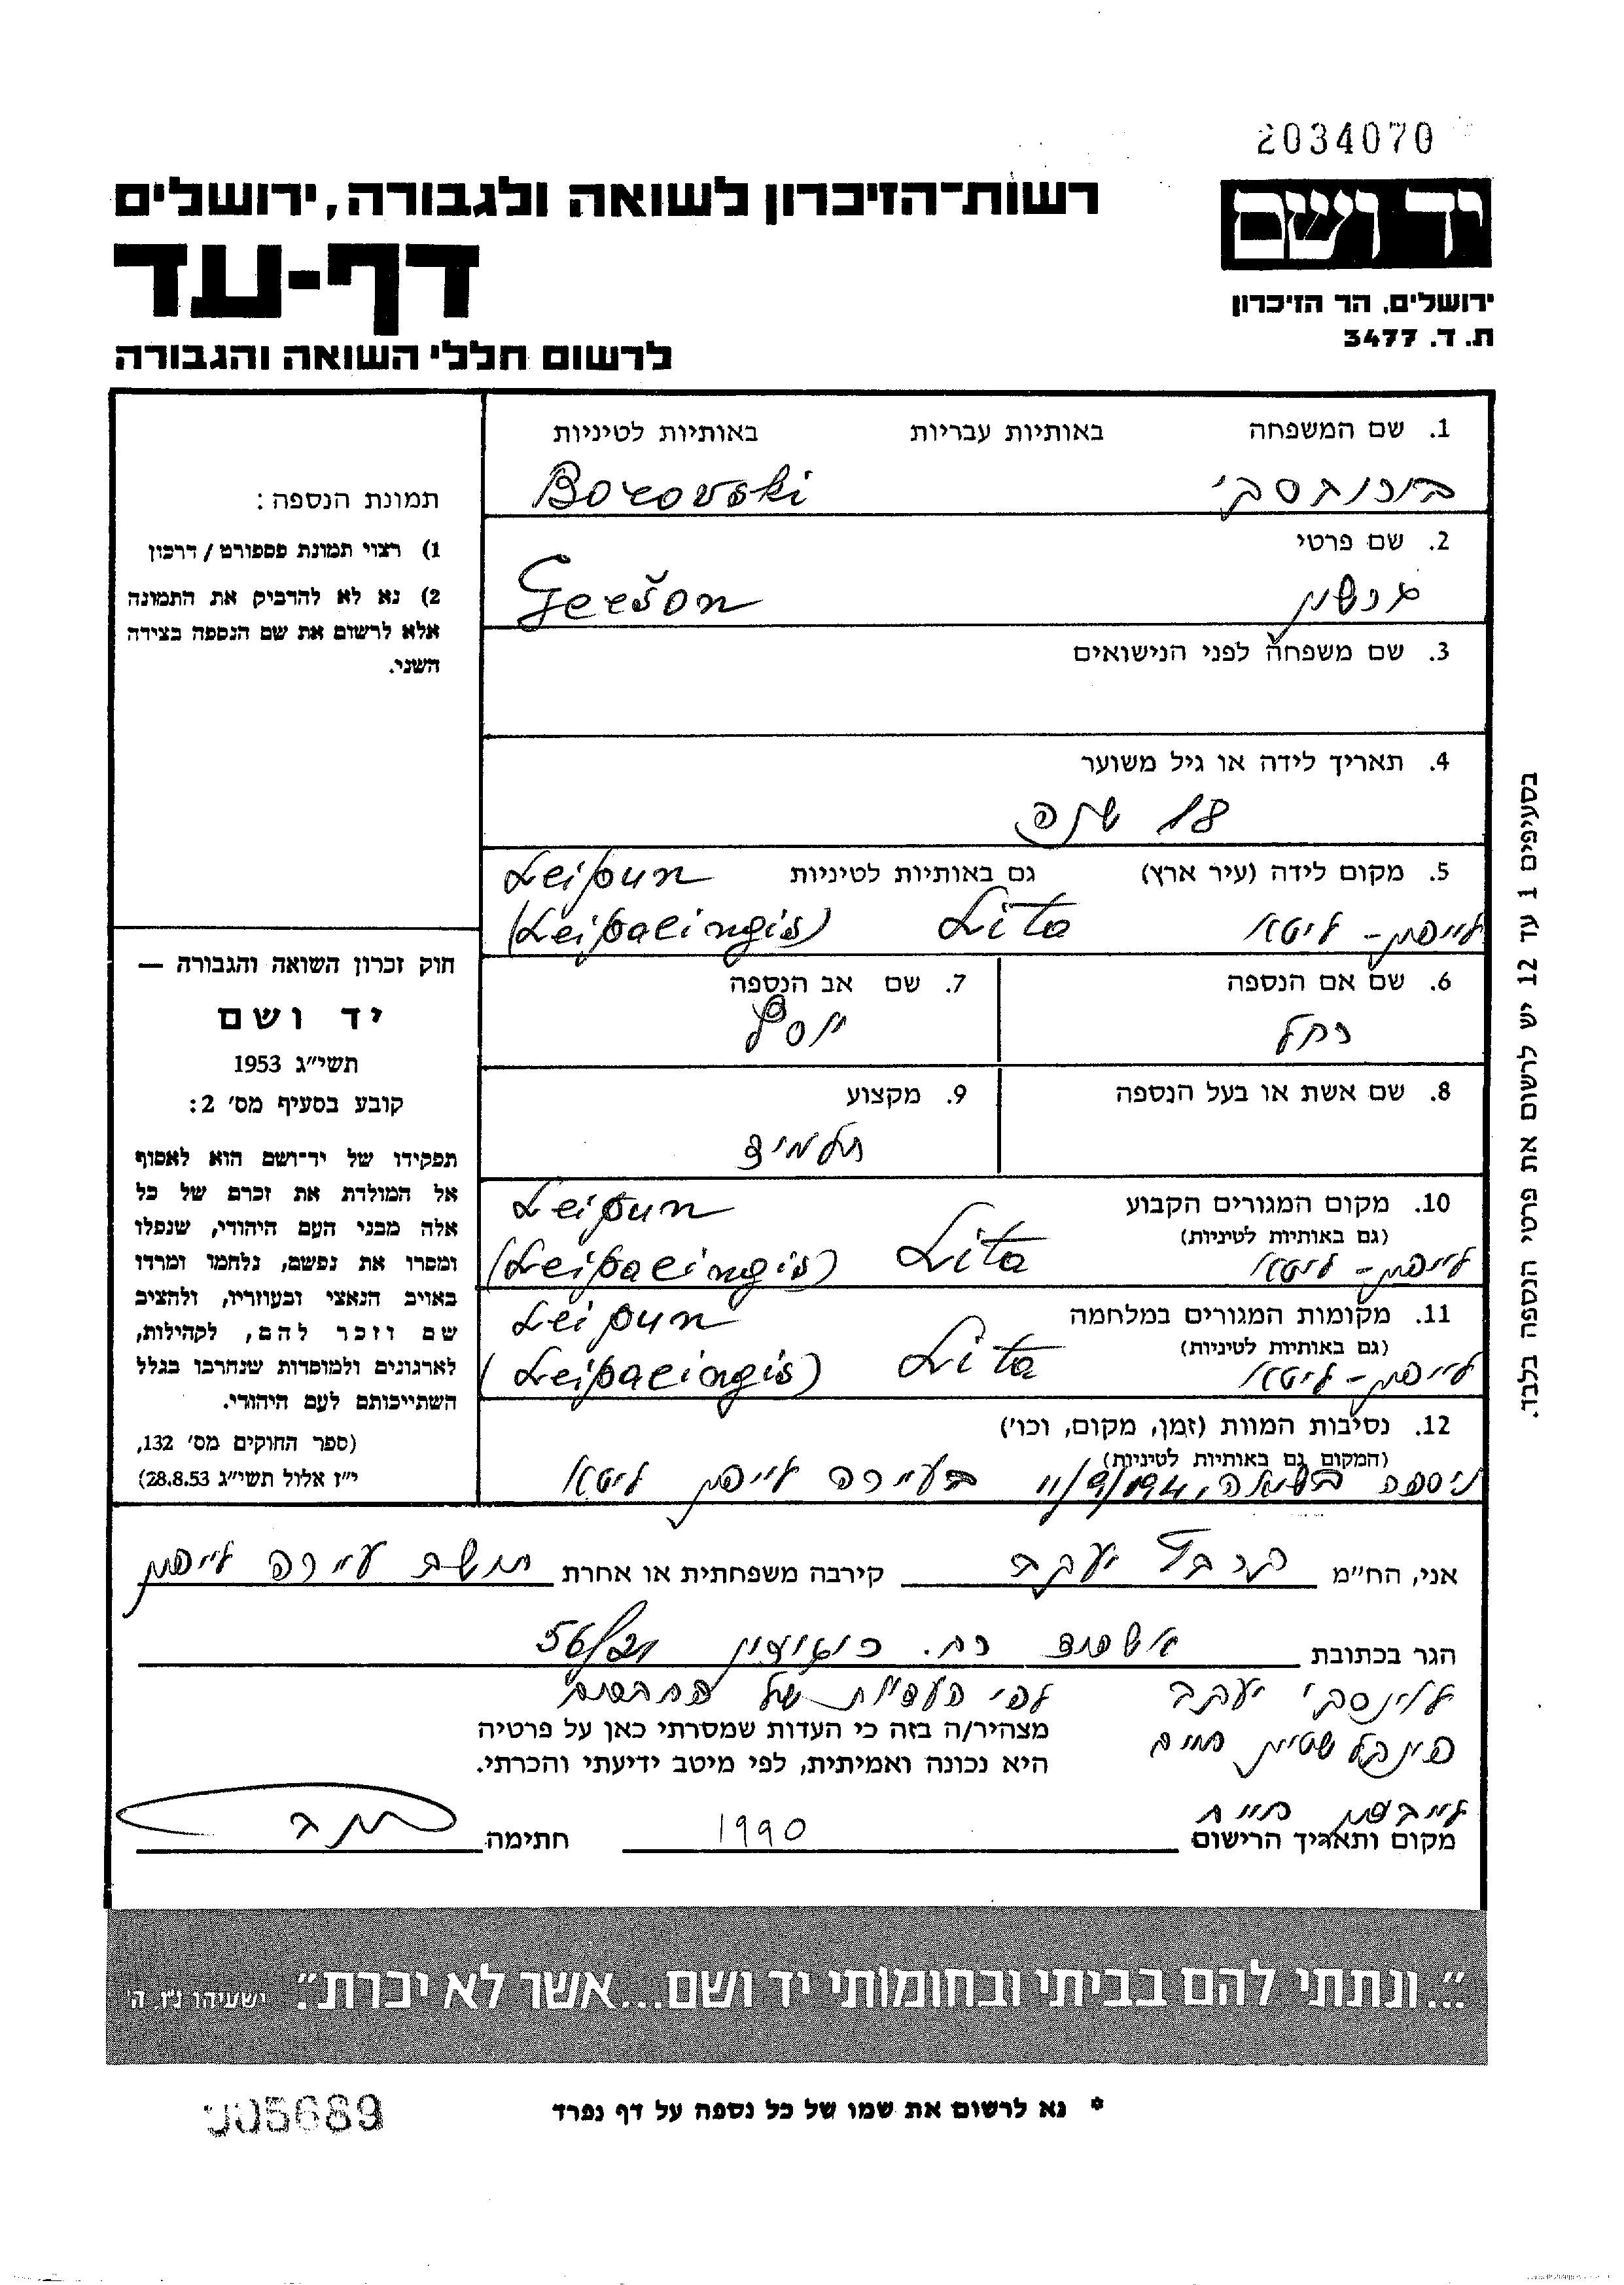 2034070
רשות־הזיכרון לשואה ולגבורה, ירושלים
יד ושם
דף-עד
ירושלים, הר הזיכרון
ת. ד. 3477
לרשום חללי השואה והגבורה
1. שם המשפחה באותיות עבריות באותיות לטיניות
בורובסקי Borovski
2. שם פרטי
גרשון Geršon
3. שם משפחה לפני הנישואים
4. תאריך לידה או גיל משוער
18 שנה
5. מקום לידה (עיר ארץ) גם באותיות לטיניות Leipun
לייפון - ליטא Lita (Leipalingis)
6. שם אם הנספה 7. שם אב הנספה
רחל יוסף
8. שם אשת או בעל הנספה 9. מקצוע
תלמיד
10. מקום המגורים הקבוע Leipun
(גם באותיות לטיניות)
לייפון - ליטא Lita (Leipalingis)
11. מקומות המגורים במלחמה Leipun
(גם באותיות לטיניות)
לייפון - ליטא Lita (Leipalingis)
12. נסיבות המוות (זמן, מקום, וכו')
(המקום גם באותיות לטיניות)
ניספה בשואה, 11/9/1941 בעיירה לייפון ליטא
תמונת הנספה:
1) רצוי תמונת פספורט / דרכון
2) נא לא להדביק את התמונה
אלא לרשום את שם הנספה בצידה
השני.
חוק זכרון השואה והגבורה —
יד ושם
תשי״ג 1953
קובע בסעיף מס׳ 2:
תפקידו של יד־ושם הוא לאסוף
אל המולדת את זכרם של כל
אלה מבני העם היהודי, שנפלו
ומסרו את נפשם, נלחמו ומרדו
באויב הנאצי ובעוזריו, ולהציב
שם וזכר להם, לקהילות,
לארגונים ולמוסדות שנחרבו בגלל
השתייכותם לעם היהודי.
(ספר החוקים מס׳ 132,
י״ז אלול תשי״ג 28.8.53)
בסעיפים 1 עד 12 יש לרשום את פרטי הנספה בלבד.
אני, הח״מ יעקב קירבה משפחתית או אחרת תושב עיירה לייפון
הגר בכתובת אשדוד רח. 56/21
יעקב לפי העדות של
מצהיר/ה בזה כי העדות שמסרתי כאן על פרטיה
היא נכונה ואמיתית, לפי מיטב ידיעתי והכרתי.
מקום ותאריך הרישום 1990 חתימה
״...ונתתי להם בביתי ובחומותי יד ושם...אשר לא יכרת״. ישעיהו נ״ו, ה׳
* נא לרשום את שמו של כל נספה על דף נפרד
005689